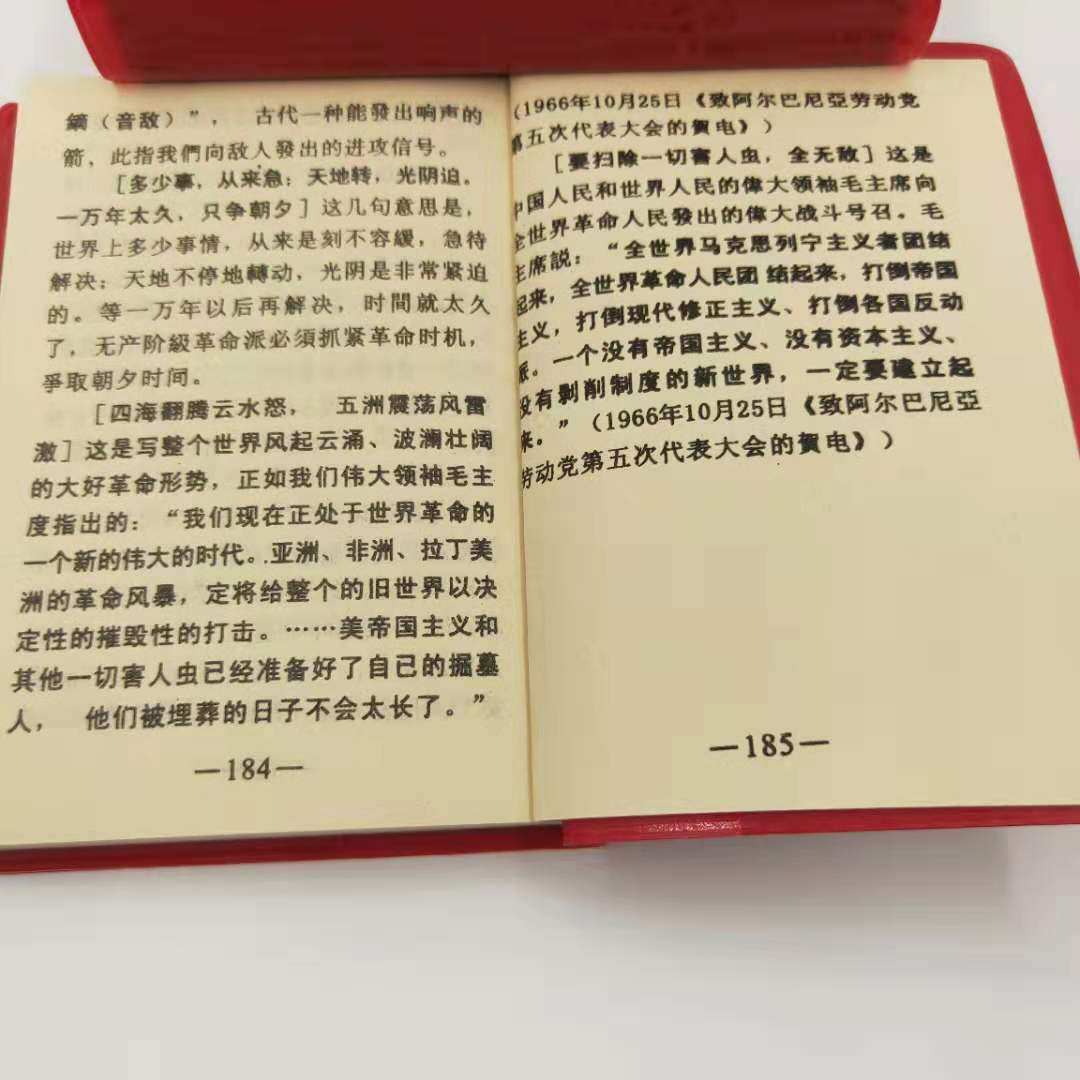 鏑（音敌）”， 古代一种能發出响声的
箭，此指我們向敌人發出的进攻信号。
［多少事，从来急；天地转，光阴迫。
一万年太久，只争朝夕］这几句意思是，
世界上多少事情，从来是刻不容緩，急待
解决；天地不停地轉动，光阴是非常紧迫
的。等一万年以后再解决，时間就太久
了，无产阶級革命派必須抓紧革命时机，
爭取朝夕时间。
［四海翻腾云水怒， 五洲震荡风雷
激］这是写整个世界风起云涌、波澜壮阔
的大好革命形势，正如我们伟大领袖毛主
度指出的：“我们现在正处于世界革命的
一个新的伟大的时代。亚洲、非洲、拉丁美
洲的革命风暴，定将给整个的旧世界以决
定性的摧毁性的打击。……美帝国主义和
其他一切害人虫已经准备好了自已的掘墓
人， 他们被埋葬的日子不会太长了。”
—184—
（1966年10月25日《致阿尔巴尼亞劳动党
第五次代表大会的賀电》）
［要扫除一切害人虫，全无敌］这是
中国人民和世界人民的偉大领袖毛主席向
全世界革命人民發出的偉大战斗号召。毛
主席説：“全世界马克思列宁主义者团结
起来，全世界革命人民团结起来，打倒帝国
主义，打倒现代修正主义、打倒各国反动
派。一个没有帝国主义、没有资本主义、
没有剥削制度的新世界，一定要建立起
来。”（1966年10月25日《致阿尔巴尼亞
劳动党第五次代表大会的賀电》）
—185—